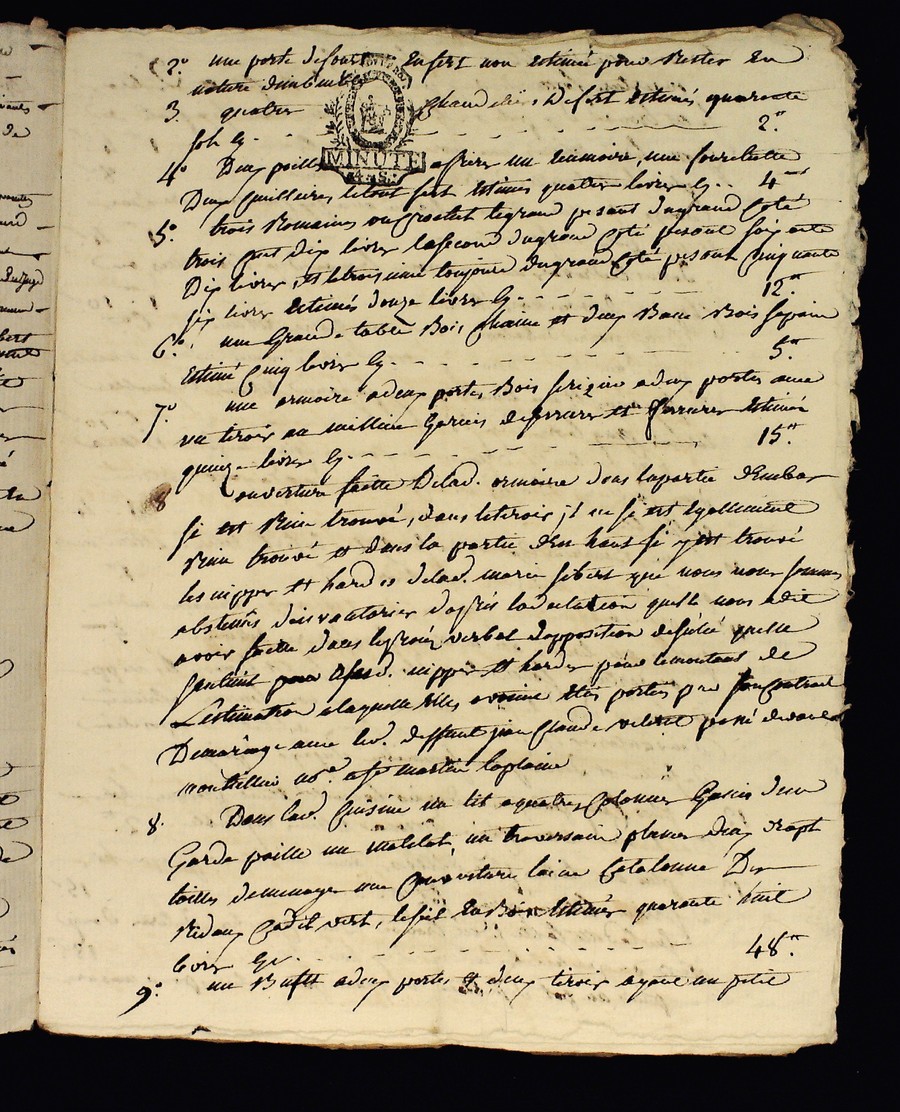 2.° une porte de four en fert non estimée pour rester en
nature d'imbuble
3. quatre chandeliers de fert estimés quarante
sols Cy. 2.
MINUTE
4.° Deux poilles a frire un une fourchette
Deux cuilliers le tout fert estimés quatre livres Cy. 4
5.° trois Romaines ou crochet le grand pesant du grand coté
trois cent dix livres la seconde du grand coté pesant soixante
Dix livres, et la troisieme toujours du grand coté pesant cinquante
six livres estimées douze livres Cy. 12.
6.° une Grande table Bois chaine et deux Banc Bois sapin
estimé cinq livres Cy. 5.
7.° une armoire a deux portes Bois a deux portes avec
un tiroir au millieu Garnies de serrures et ferrures estimée
quinze livres Cy. 15.
8 ouverture faitte de lad. armoire dans la partie d'embas
si est rien trouvé, dans le tiroir, il ne si est egallement
rien trouvé et dans la partie d'en haut si y est trouvé
les nippes et hardes de lad. marie sibert que nous nous sommes
abstenus d'inventorier d'après la declaration quelle nous a dit
avoir faitte dans le procès verbal d'apposition de sçélé quelle
lesd. nippes et hardes pour le montant de
L'estimation a laquelle elles avoient étés portés par son contrat
De mariage avec led. deffunt jean Claude reçu devant
no.re a St martin laplaine
8. Dans lad. Cuisine un lit a quatre colonnes Garnis d'un
Garde paille un matelat, un traversain plumes deux draps
toilles de menage une couverture laine Catalonne Des
Rideaux Cadit vert, le fut en Bois estimés quarante huit
livres Cy. 48.
9.° un Buffet a deux portes et deux tiroir ayant un petit